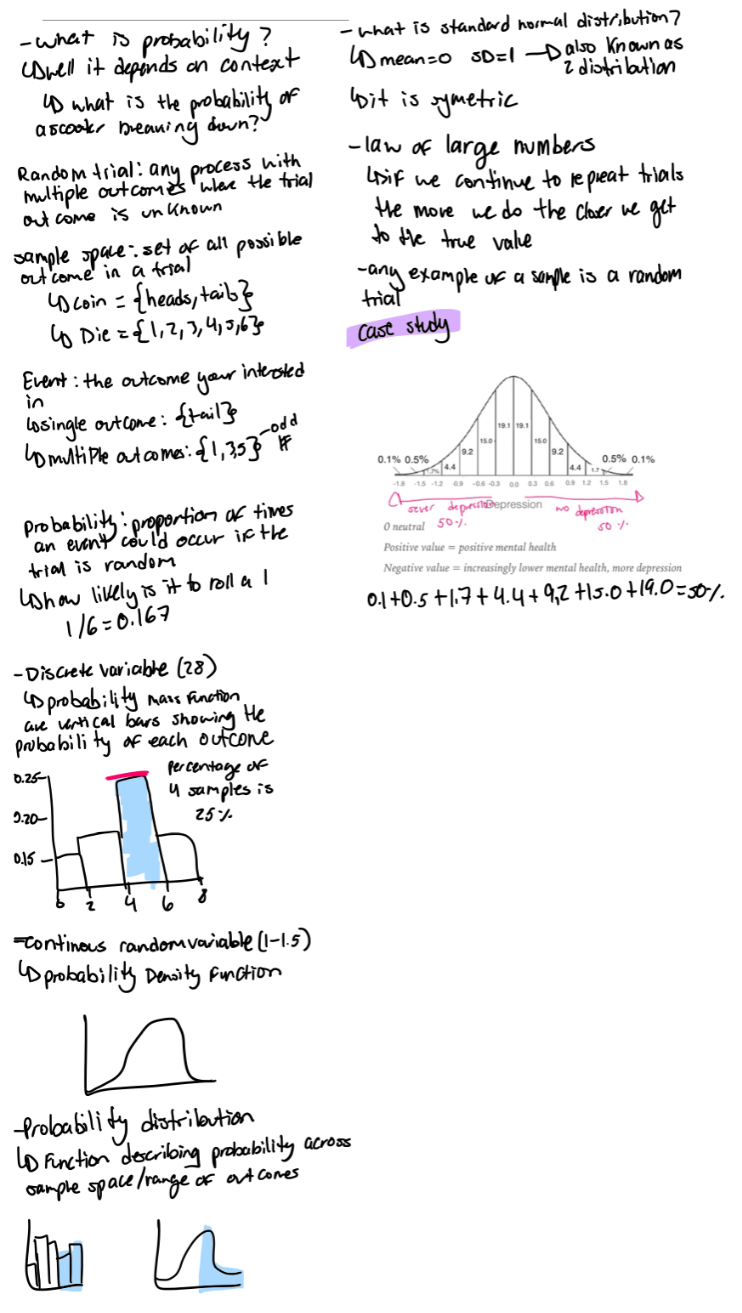 -what is probability?
↳well it depends on context
↳ what is the probability of
a scooter breaking down?
Random trial: any process with
multiple outcomes where the trial
outcome is unknown
sample space: set of all possible
outcome in a trial
↳coin = {heads, tails}
↳ Die = {1,2,3,4,5,6}
Event: the outcome your intersted
in
↳single outcome: {tail}
↳multiple outcomes: {1,3,5} -odd
#
Probability: proportion of times
an event could occur if the
trial is random
↳how likely is it to roll a 1
1/6=0.167
-Discrete variable (28)
↳probability mass function
are vertical bars showing the
probability of each outcome
percentage of
4 samples is
25%
0.25
0.20
0.15
0 2 4 6 8
-continous random variable (1-1.5)
↳probability Density Function
-Probability distribution
↳ Function describing probability across
sample space/range of outcomes
-what is standard normal distribution?
↳mean=0 SD=1 → also known as
z distribution
↳it is symetric
-law of large numbers
↳if we continue to repeat trials
the more we do the closer we get
to the true value
-any example of a sample is a random
trial
case study
0.1% 0.5% 1.7% 4.4 9.2 15.0 19.1 19.1 15.0 9.2 4.4 1.7 0.5% 0.1%
-1.8 -1.5 -1.2 -0.9 -0.6 -0.3 0.0 0.3 0.6 0.9 1.2 1.5 1.8
sever depression Depression no depression
50% 50%
0 neutral
Positive value = positive mental health
Negative value = increasingly lower mental health, more depression
0.1+0.5+1.7+4.4+9.2+15.0+19.0=50%